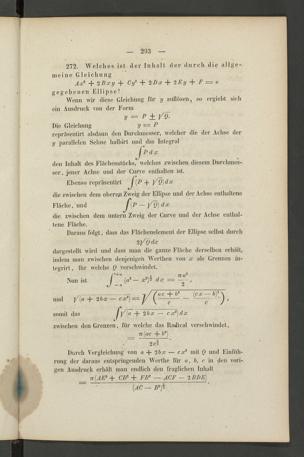 — 293 —
272. Welches ist der Inhalt der durch die allge-
meine Gleichung
Ax² + 2Bxy + Cy² + 2Dx + 2Ey + F = o
gegebenen Ellipse!
Wenn wir diese Gleichung für y auflösen, so ergiebt sich
ein Ausdruck von der Form
y = P ± √Q.
Die Gleichung y = P
repräsentirt alsdann den Durchmesser, welcher die der Achse der
y parallelen Sehne halbirt und das Integral
∫P dx
den Inhalt des Flächenstücks, welches zwischen diesem Durchmes-
ser, jener Achse und der Curve enthalten ist.
Ebenso repräsentirt ∫(P + √Q) dx
die zwischen dem obern Zweig der Ellipse und der Achse enthaltene
Fläche, und ∫(P − √Q) dx
die zwischen dem untern Zweig der Curve und der Achse enthal-
tene Fläche.
Daraus folgt, dass das Flächenelement der Ellipse selbst durch
2√Q dx
dargestellt wird und dass man die ganze Fläche derselben erhält,
indem man zwischen denjenigen Werthen von x als Grenzen in-
tegrirt, für welche Q verschwindet.
Nun ist ∫₋ₐ⁺ᵃ (a² − x²)^½ dx = πa²/2,
und √(a + 2bx − cx²) = √((ac + b²)/c − (cx − b)²/c),
somit das ∫√(a + 2bx − cx²) dx
zwischen den Grenzen, für welche das Radical verschwindet,
= π(ac + b²)/2c^(3/2).
Durch Vergleichung von a + 2bx − cx² mit Q und Einfüh-
rung der daraus entspringenden Werthe für a, b, c in den vori-
gen Ausdruck erhält man endlich den fraglichen Inhalt
= π(AE² + CD² + FB² − ACF − 2BDE)/(AC − B²)^(3/2).